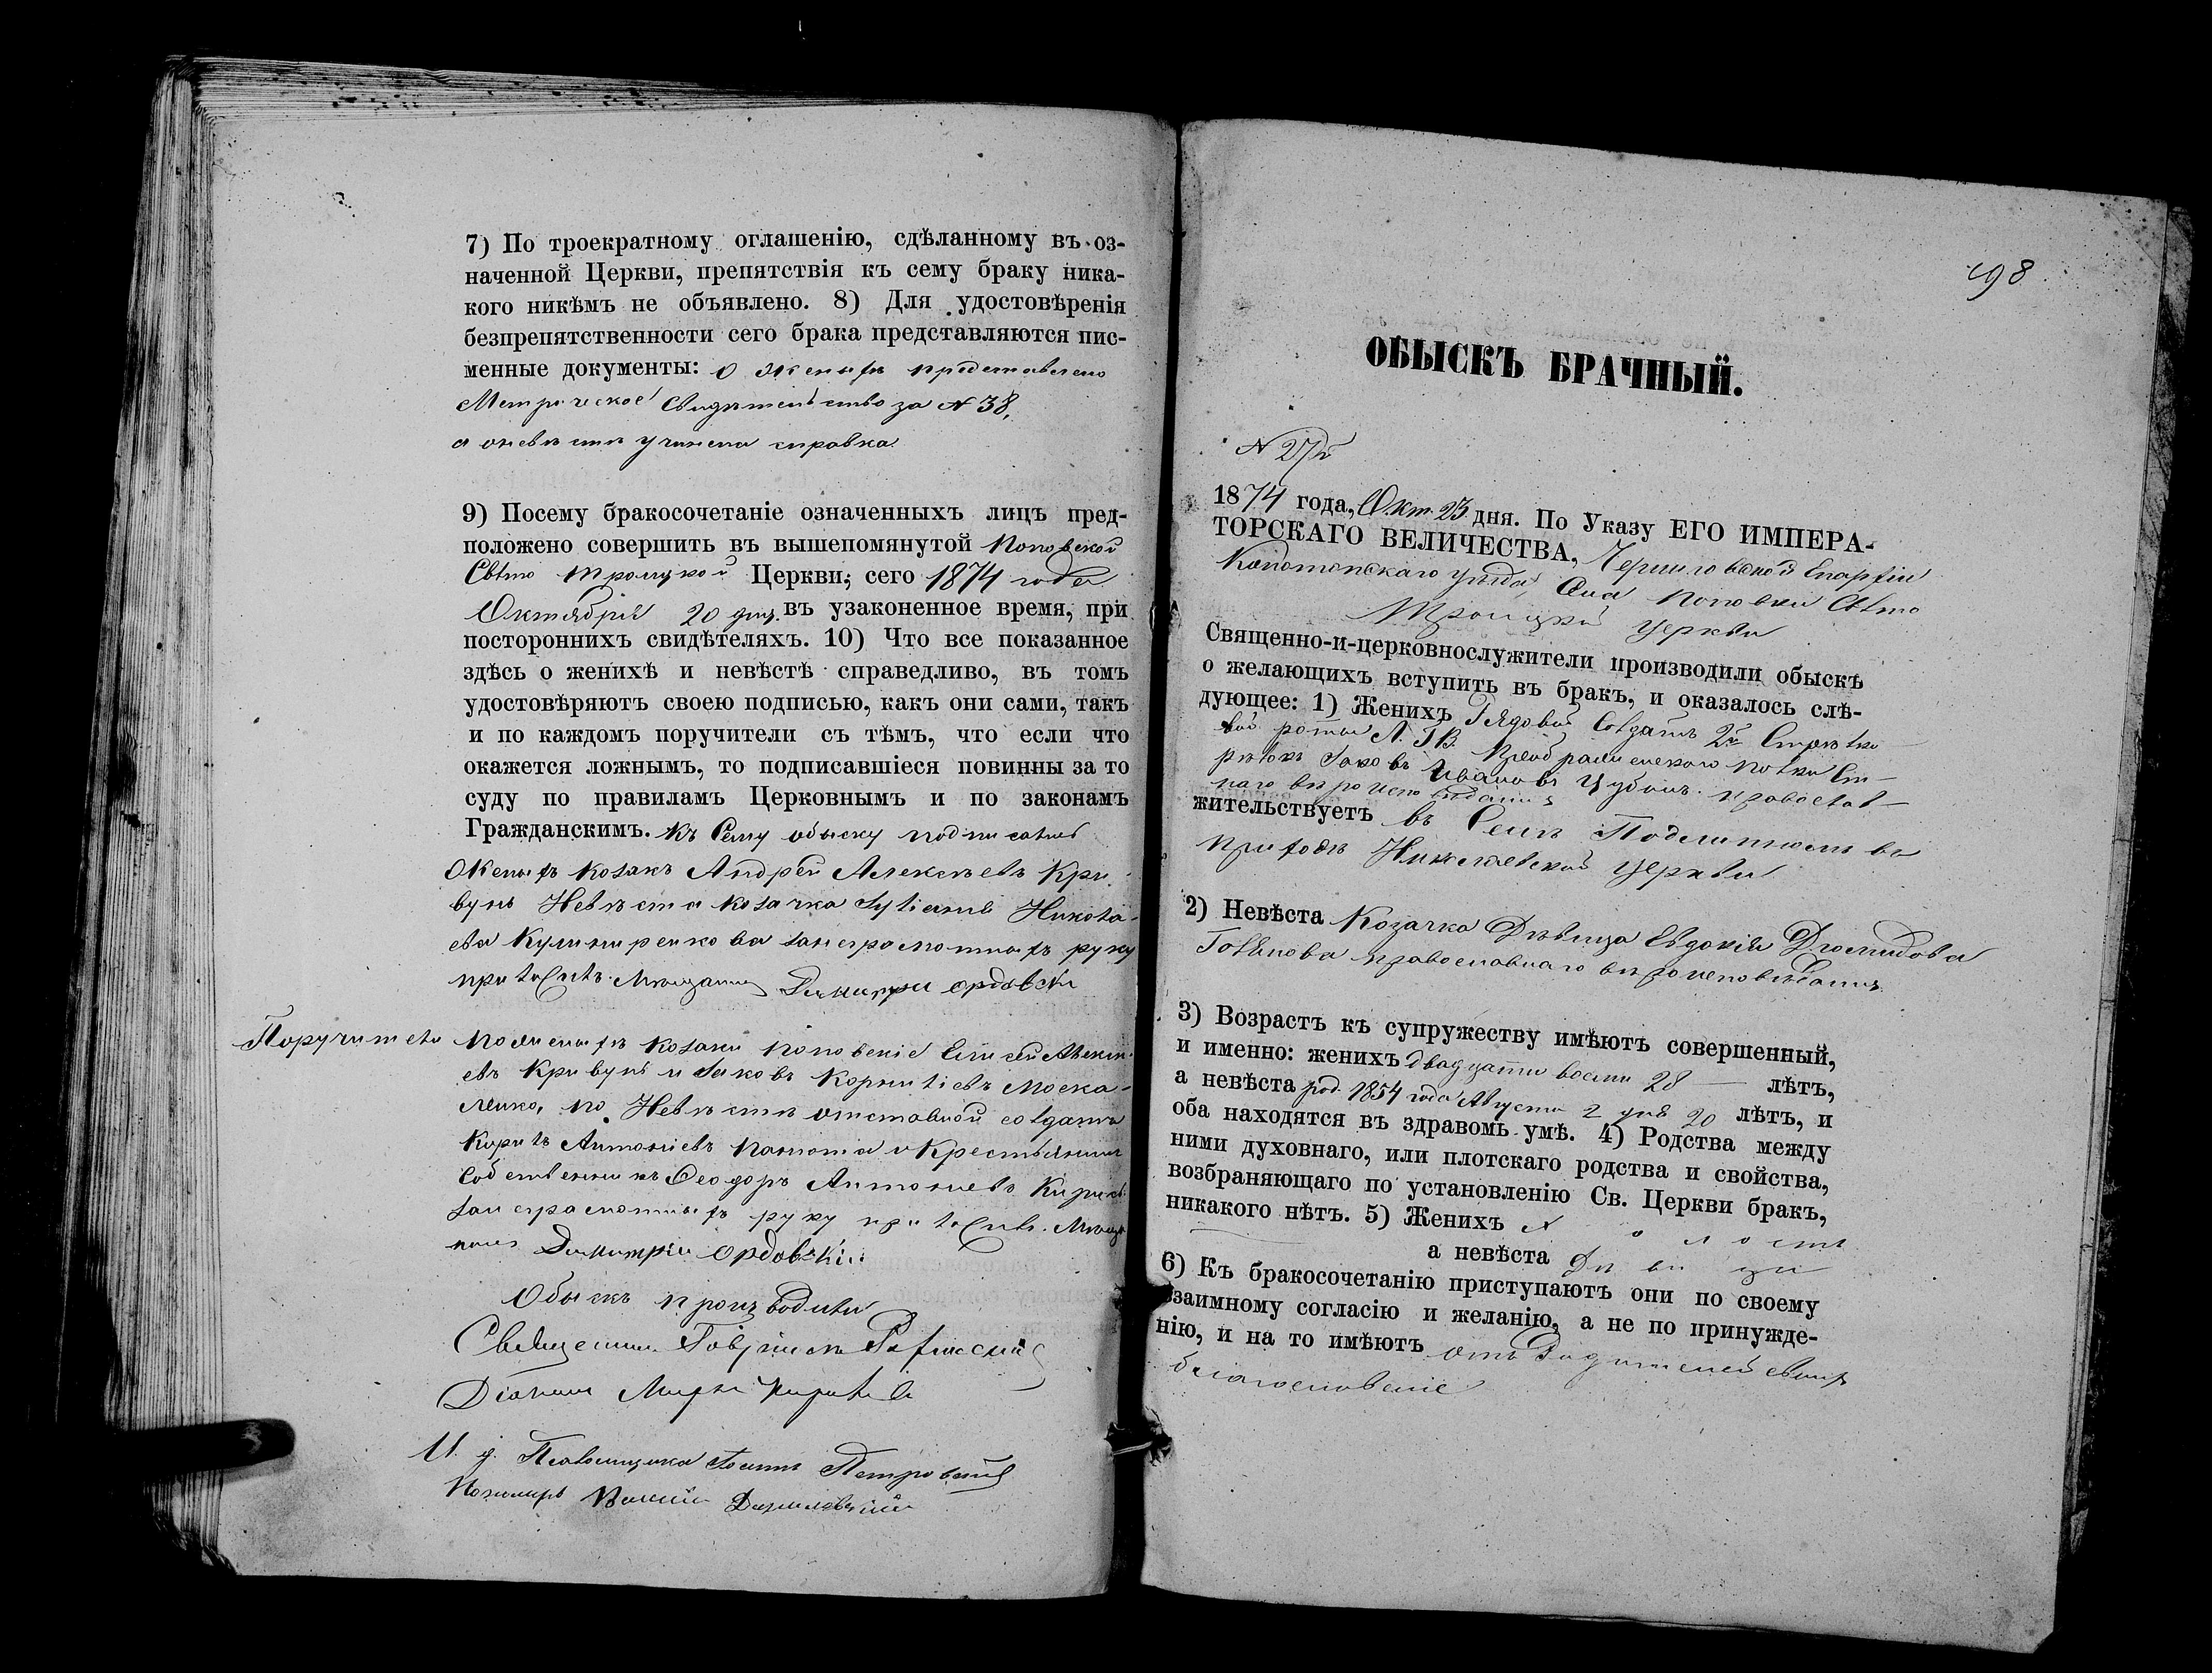 7) По троекратному оглашенію, сдѣланному въ оз-
наченной Церкви, препятствія къ сему браку ника-
кого никѣмъ не объявлено. 8) Для удостовѣренія
безпрепятственности сего брака представляются пис-
менные документы: о женихѣ представлено
Метрическое свидѣтельство за № 38,
а о невѣстѣ учинена справка
9) Посему бракосочетаніе означенныхъ лицъ пред-
положено совершить въ вышепомянутой Поповской
Свято Троицкой Церкви, сего 1874 года
Октября 20 дня въ узаконенное время, при
постороннихъ свидѣтеляхъ. 10) Что все показанное
здѣсь о женихѣ и невѣстѣ справедливо, въ томъ
удостовѣряютъ своею подписью, какъ они сами, такъ
и по каждомъ поручители съ тѣмъ, что если что
окажется ложнымъ, то подписавшіеся повинны за то
суду по правиламъ Церковнымъ и по законамъ
Гражданскимъ. Къ сему обыску подписались
Женихъ козакъ Андрей Алексѣевъ Кри-
вунь Невѣста козачка Никола-
ева за неграмотныхъ руку
приложилъ Мѣщанинъ Димитрій Ордовскій
Поручители По женихѣ козаки поповскіе Елисей Алексѣ-
евъ Кривунь и Іаковъ Корниліевъ Моска-
ленко, по Невѣстѣ отставной солдатъ
Кирилъ Антоніевъ и Крестьянинъ
собственникъ Феодоръ Антоніевъ
за неграмотныхъ руку приложилъ Мѣща-
нинъ Димитрій Ордовскій
Обыскъ производили
Священникъ Гавріилъ
Діаконъ
И. д. Псаломщика Іоаннъ Петровскій
Пономарь
198
ОБЫСКЪ БРАЧНЫЙ.
№ 27й
1874 года, Окт. 23 дня. По Указу ЕГО ИМПЕРА-
ТОРСКАГО ВЕЛИЧЕСТВА, Черниговской Епархіи
Конотопскаго уѣзда, Села Поповки Свято
Троицкой Церкви
Священно-и-церковнослужители производили обыскъ
о желающихъ вступить въ бракъ, и оказалось слѣ-
дующее: 1) Женихъ Рядовой Солдатъ 2й Стрѣлко-
вой роты Л. Гв. Преображенскаго полка Ст-
рѣлокъ Іаковъ Ивановъ Цубанъ православ-
наго вѣроисповѣданія
жительствуетъ въ Селѣ Подлипномъ въ
приходѣ Николаевской Церкви
2) Невѣста Козачка Дѣвица Евдокія Діомидова
православнаго вѣроисповѣданія
3) Возрастъ къ супружеству имѣютъ совершенный,
и именно: женихъ двадцати восьми 28 лѣтъ,
а невѣста род. 1854 года Августа 2 дня 20 лѣтъ, и
оба находятся въ здравомъ умѣ. 4) Родства между
ними духовнаго, или плотскаго родства и свойства,
возбраняющаго по установленію Св. Церкви бракъ,
никакого нѣтъ. 5) Женихъ холостъ
а невѣста Дѣвица
6) Къ бракосочетанію приступаютъ они по своему
взаимному согласію и желанію, а не по принужде-
нію, и на то имѣютъ отъ Родителей своихъ
благословеніе